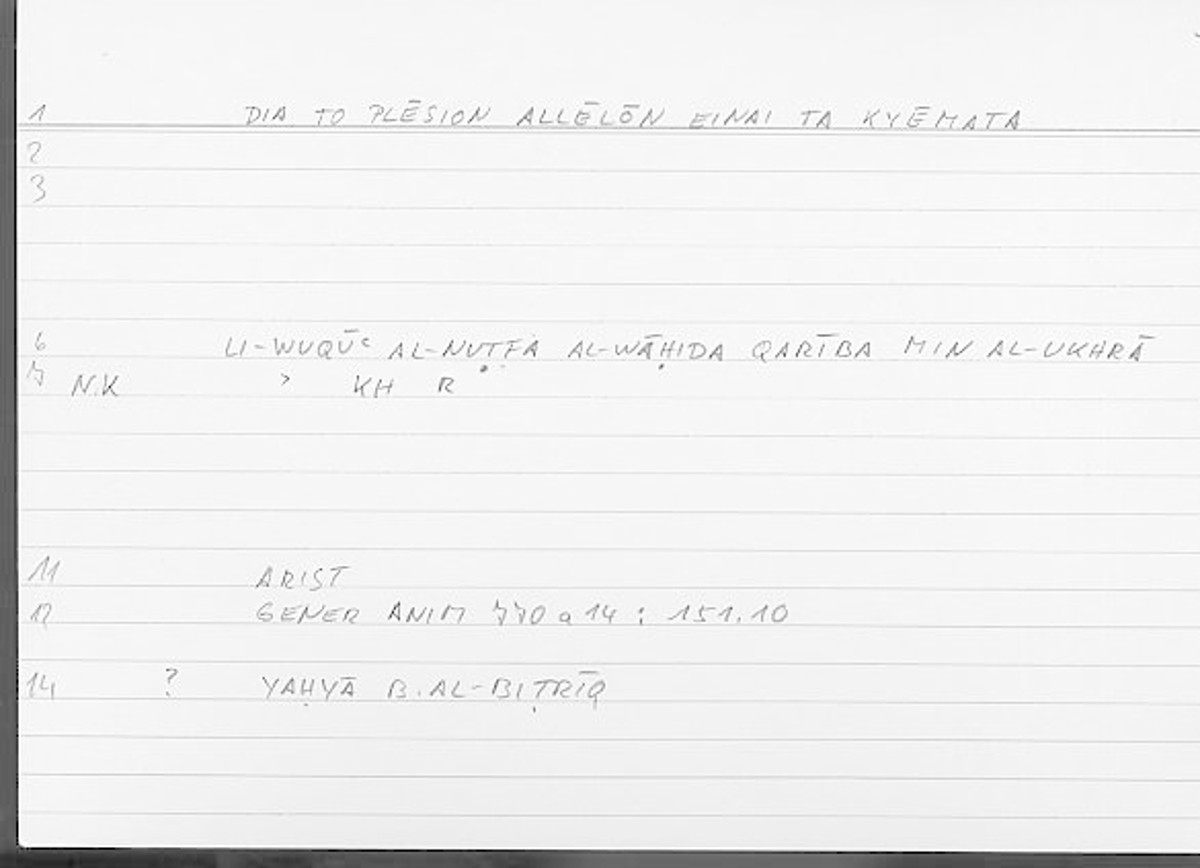 1 DIA TO PLĒSION ALLĒLŌN EINAI TA KYĒMATA
2
3
6 LI-WUQŪʿ AL-NUṬFA AL-WĀḤIDA QARĪBA MIN AL-UKHRĀ
7 N.K > KH R
11 ARIST
12 GENER ANIM 770 a 14 : 151.10
14 ? YAḤYĀ B. AL-BIṬRĪQ